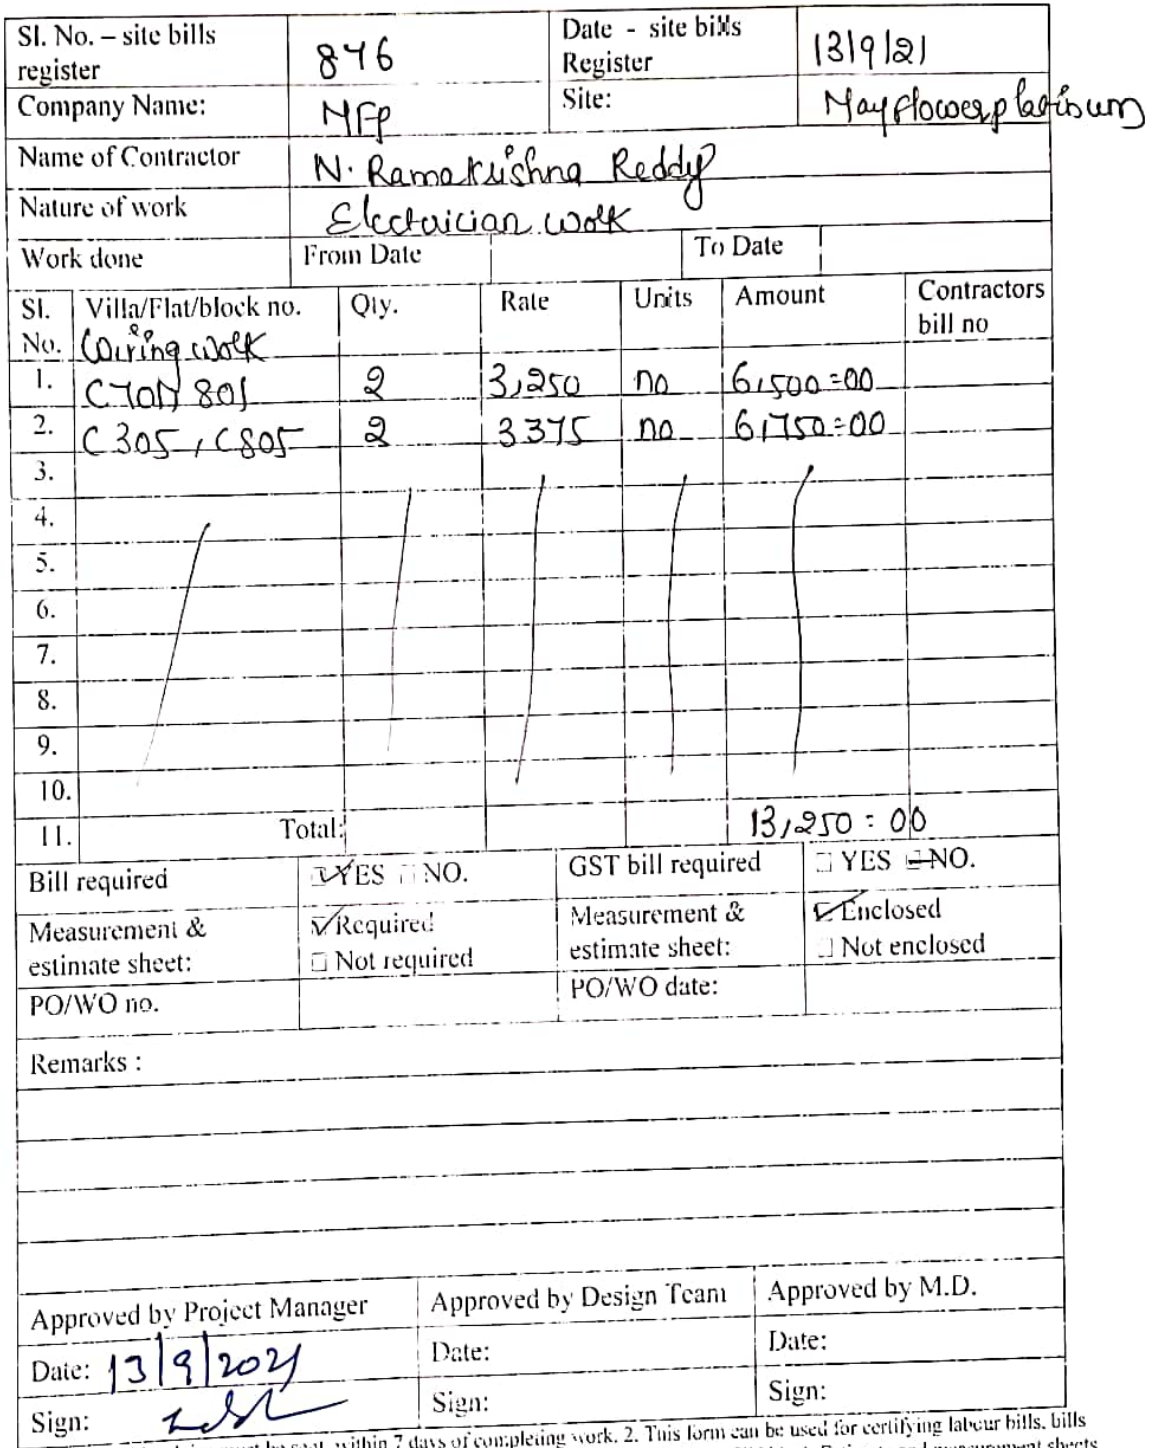 Sl. No. – site bills register 846 Date - site bills Register 13/9/21
Company Name: MFP Site: Mayflowerplatinum
Name of Contractor N. Ramakrishna Reddy
Nature of work Electrician work
Work done From Date To Date
Sl. No. Villa/Flat/block no. Qty. Rate Units Amount Contractors bill no
Wiring work
1. 801 2 3,250 no 6,500=00
2. C305, C805 2 3375 no 6,750=00
3.
4.
5.
6.
7.
8.
9.
10.
11. Total: 13,250:00
Bill required YES NO. GST bill required YES NO.
Measurement & estimate sheet: Required Measurement & estimate sheet: Enclosed
Not required Not enclosed
PO/WO no. PO/WO date:
Remarks :
Approved by Project Manager Approved by Design Team Approved by M.D.
Date: 13/9/2021 Date: Date:
Sign: Sign: Sign:
within 7 days of completing work. 2. This form can be used for certifying labour bills, bills